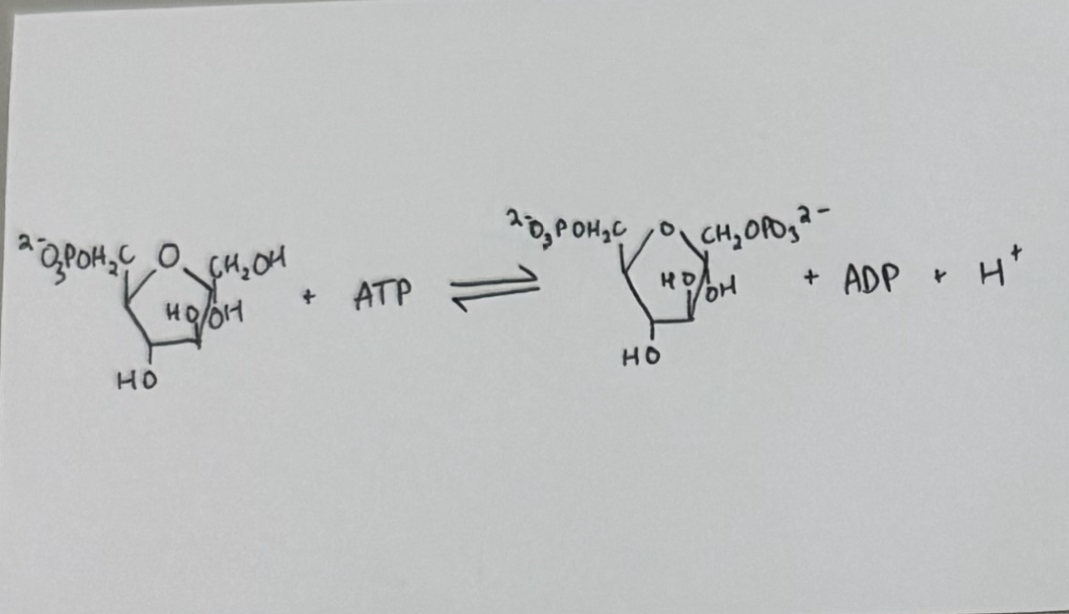 ²⁻O₃POH₂C O CH₂OH
HO OH + ATP ⇌
HO
²⁻O₃POH₂C O CH₂OPO₃²⁻
HO OH + ADP + H⁺
HO